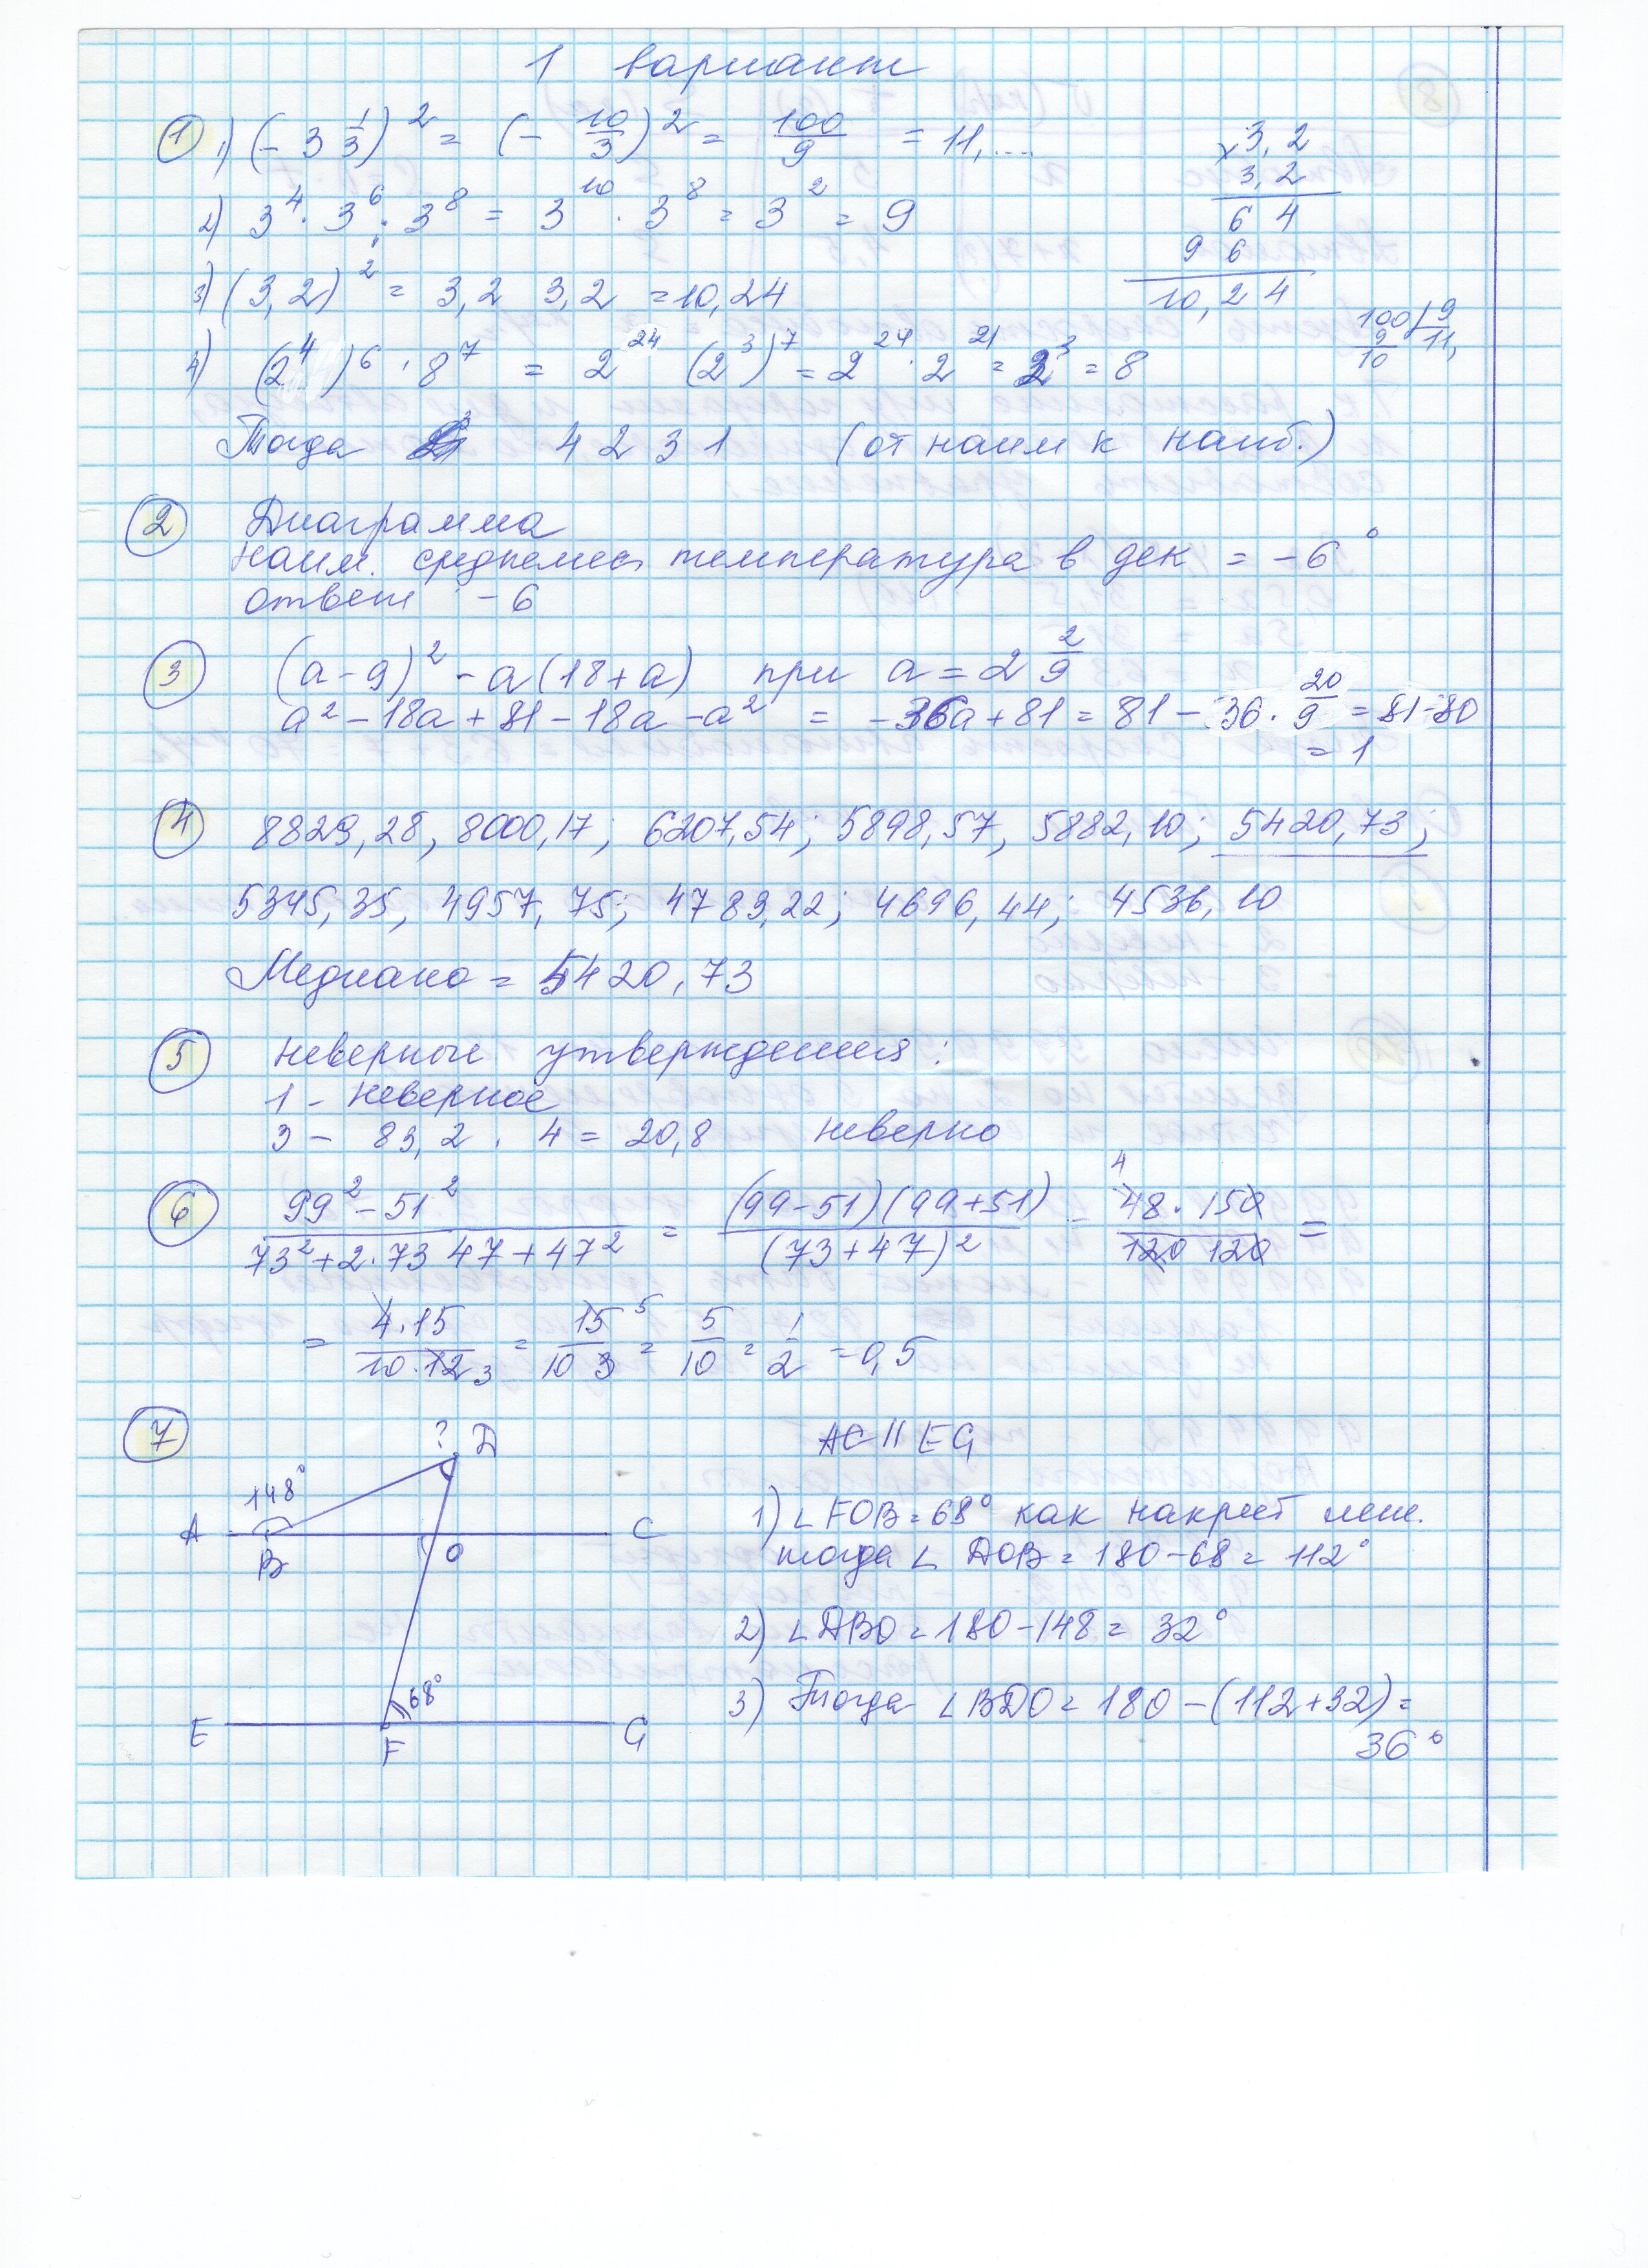 1 вариант
① 1) (-3 1/3)² = (- 10/3)² = 100/9 = 11,....
2) 3⁴ · 3⁶ : 3⁸ = 3¹⁰ · 3⁸ = 3² = 9
3) (3,2)² = 3,2 3,2 = 10,24
× 3,2
3,2
6 4
9 6
10,2 4
4) (2⁴)⁶ · 8⁷ = 2²⁴ (2³)⁷ = 2²⁴ · 2²¹ = 2³ = 8
100 | 9
9 11,
10
Тогда 4 2 3 1 (от наим к наиб.)
② Диаграмма
наим. среднемес температура в дек = -6°
ответ -6
③ (a-9)² - a(18+a) при a = 2 2/9
a² - 18a + 81 - 18a - a² = -36a + 81 = 81 - 36 · 20/9 = 81-80
= 1
④ 8829,28, 8000,17; 6207,54; 5898,57, 5882,10; 5420,73;
5345,35, 4957,75; 4783,22; 4696,44; 4536,10
Медиана = 5420,73
⑤ неверные утверждения:
1 - неверное
3 - 83,2 · 4 = 20,8 неверно
⑥ (99² - 51²)/(73² + 2·73 47 + 47²) = ((99-51)(99+51))/((73+47)²) - (48 · 150)/(120 120) =
4
= (4·15)/(10·12) 3 = 15/(10 3) 5 = 5/10 = 1/2 = 0,5
⑦ ? D
AC || EG
148°
A B O C
1) ∠FOB = 68° как накрест леж.
тогда ∠ DOB = 180-68 = 112°
2) ∠DBO = 180-148 = 32°
68°
3) Тогда ∠BDO = 180 - (112+32) =
36°
E F G